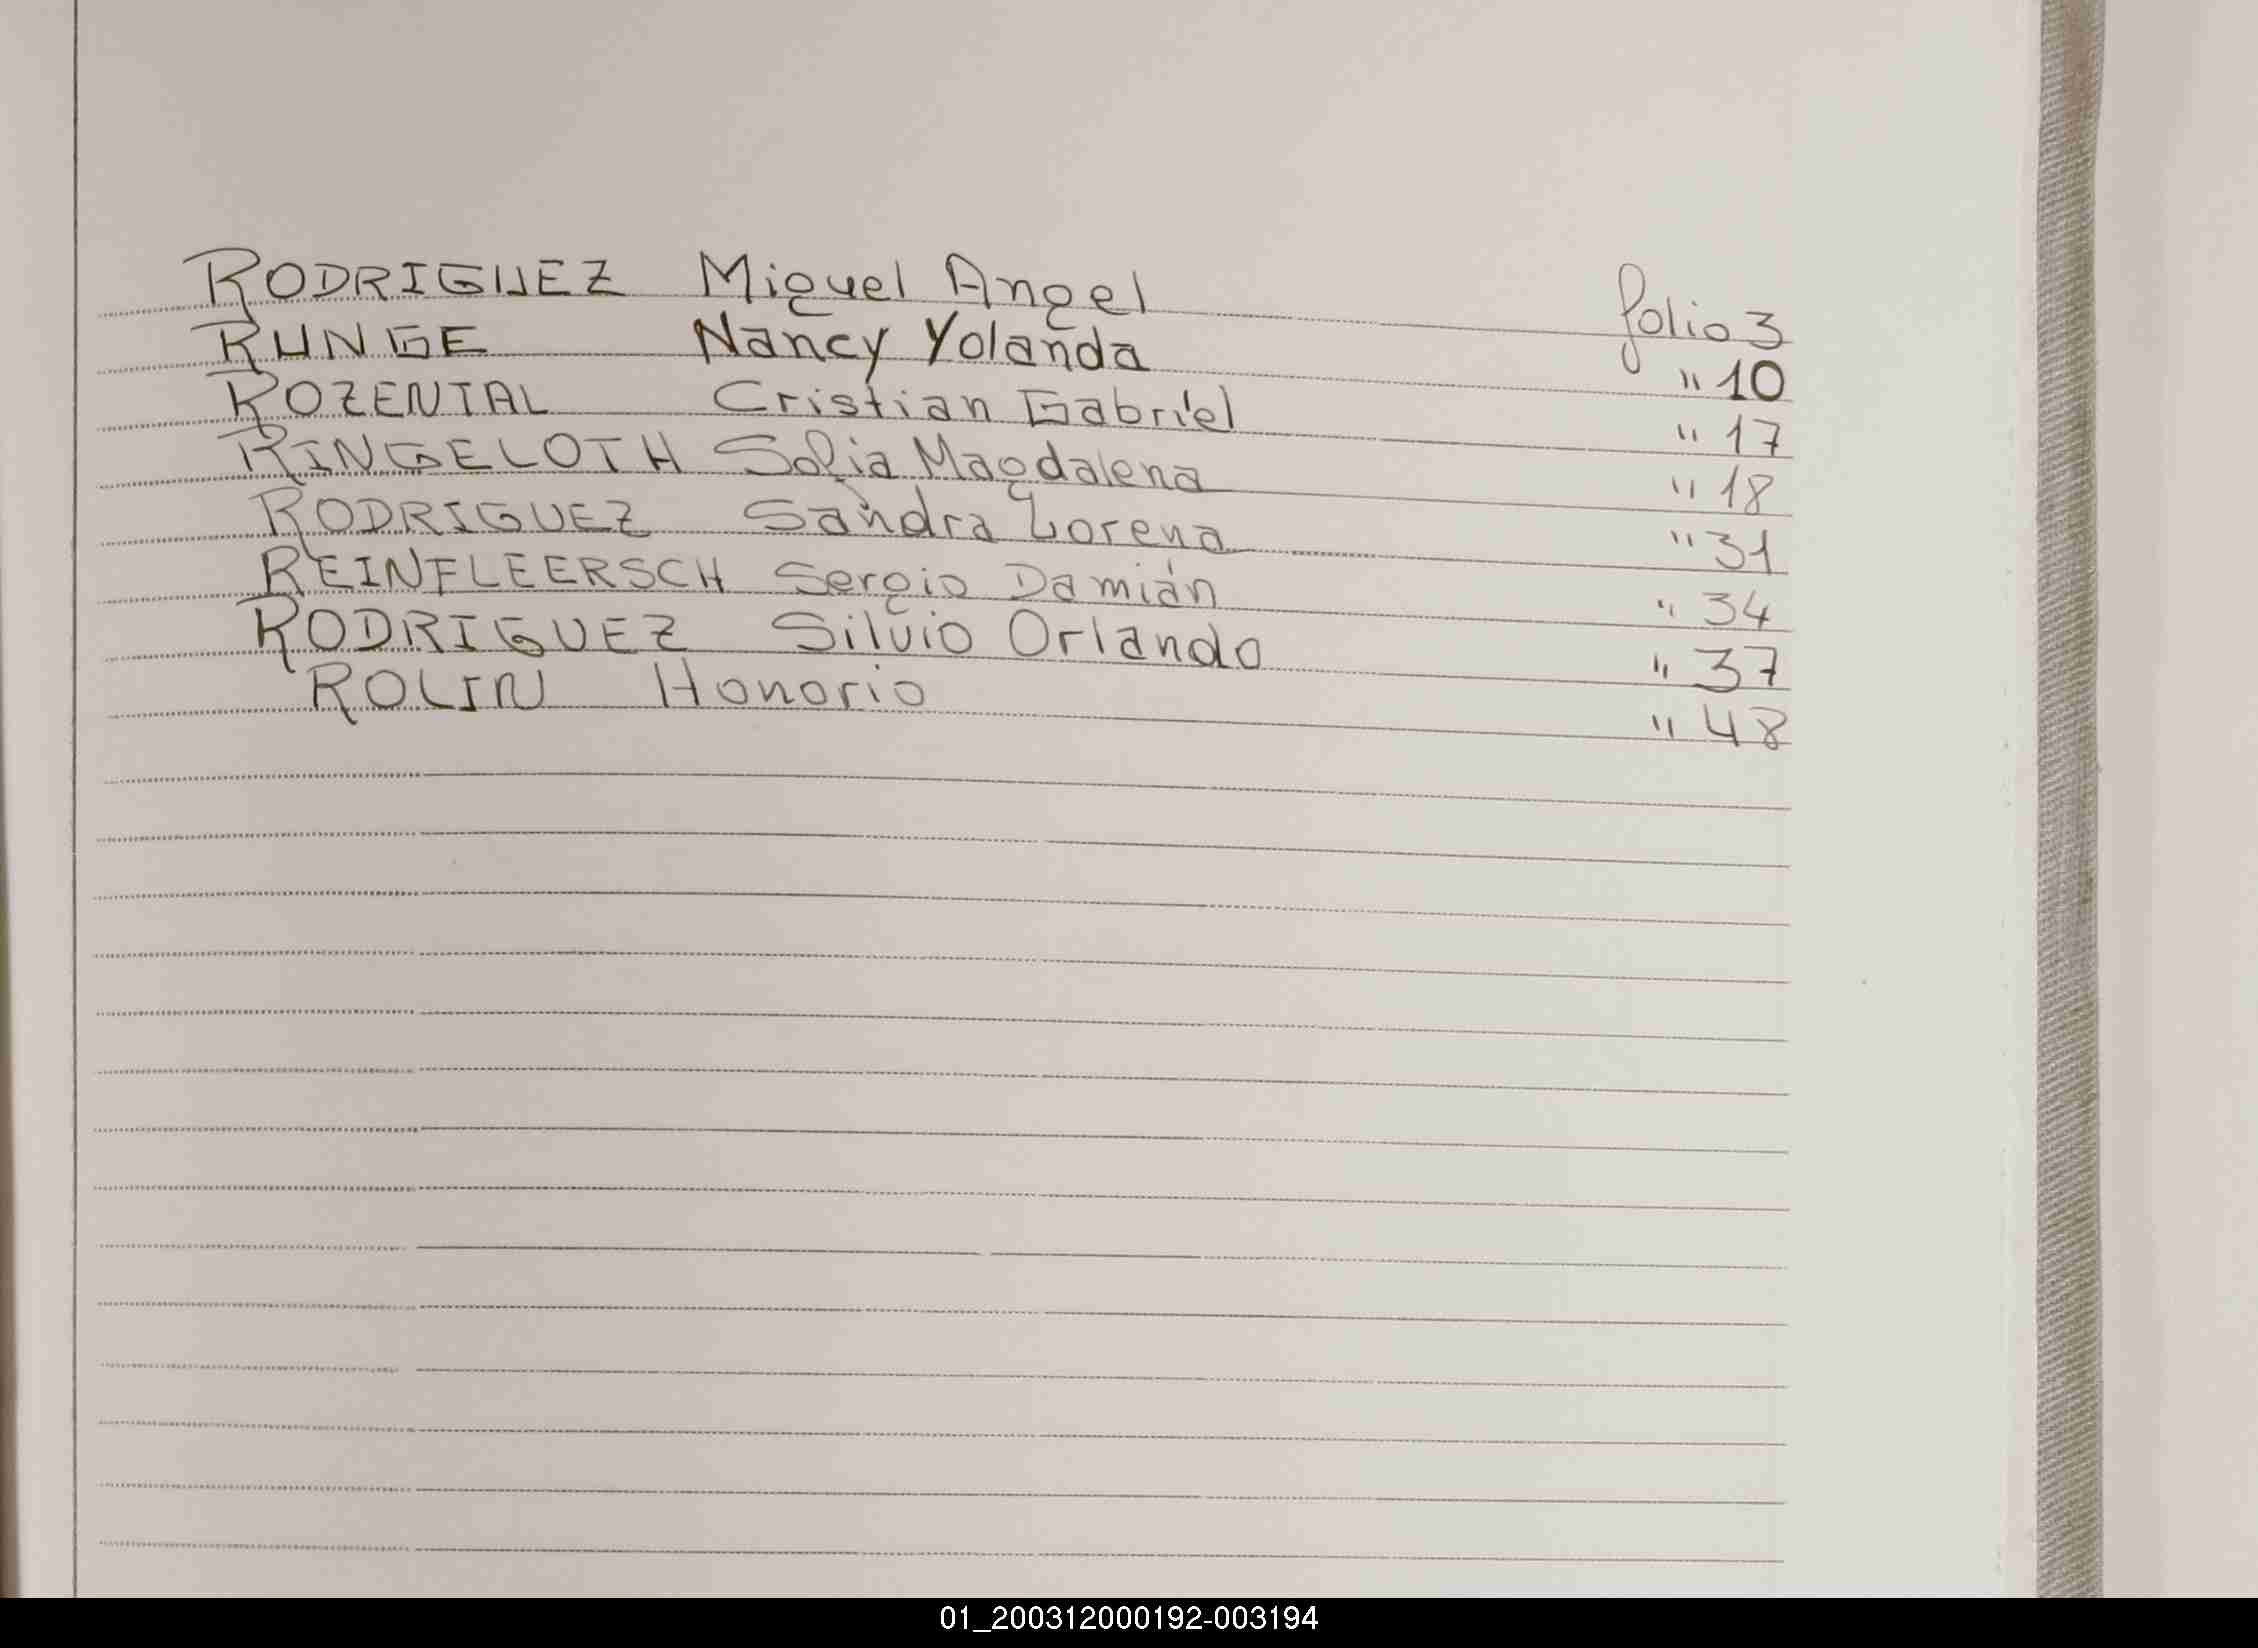 RODRIGUEZ Miguel Angel folio 3
RUNGE Nancy Yolanda " 10
ROZENTAL Cristian Gabriel " 17
RINGELOTH Sofia Magdalena " 18
RODRIGUEZ Sandra Lorena " 31
REINFLEERSCH Sergio Damián " 34
RODRIGUEZ Silvio Orlando " 37
ROLIN Honorio " 48
01_200312000192-003194